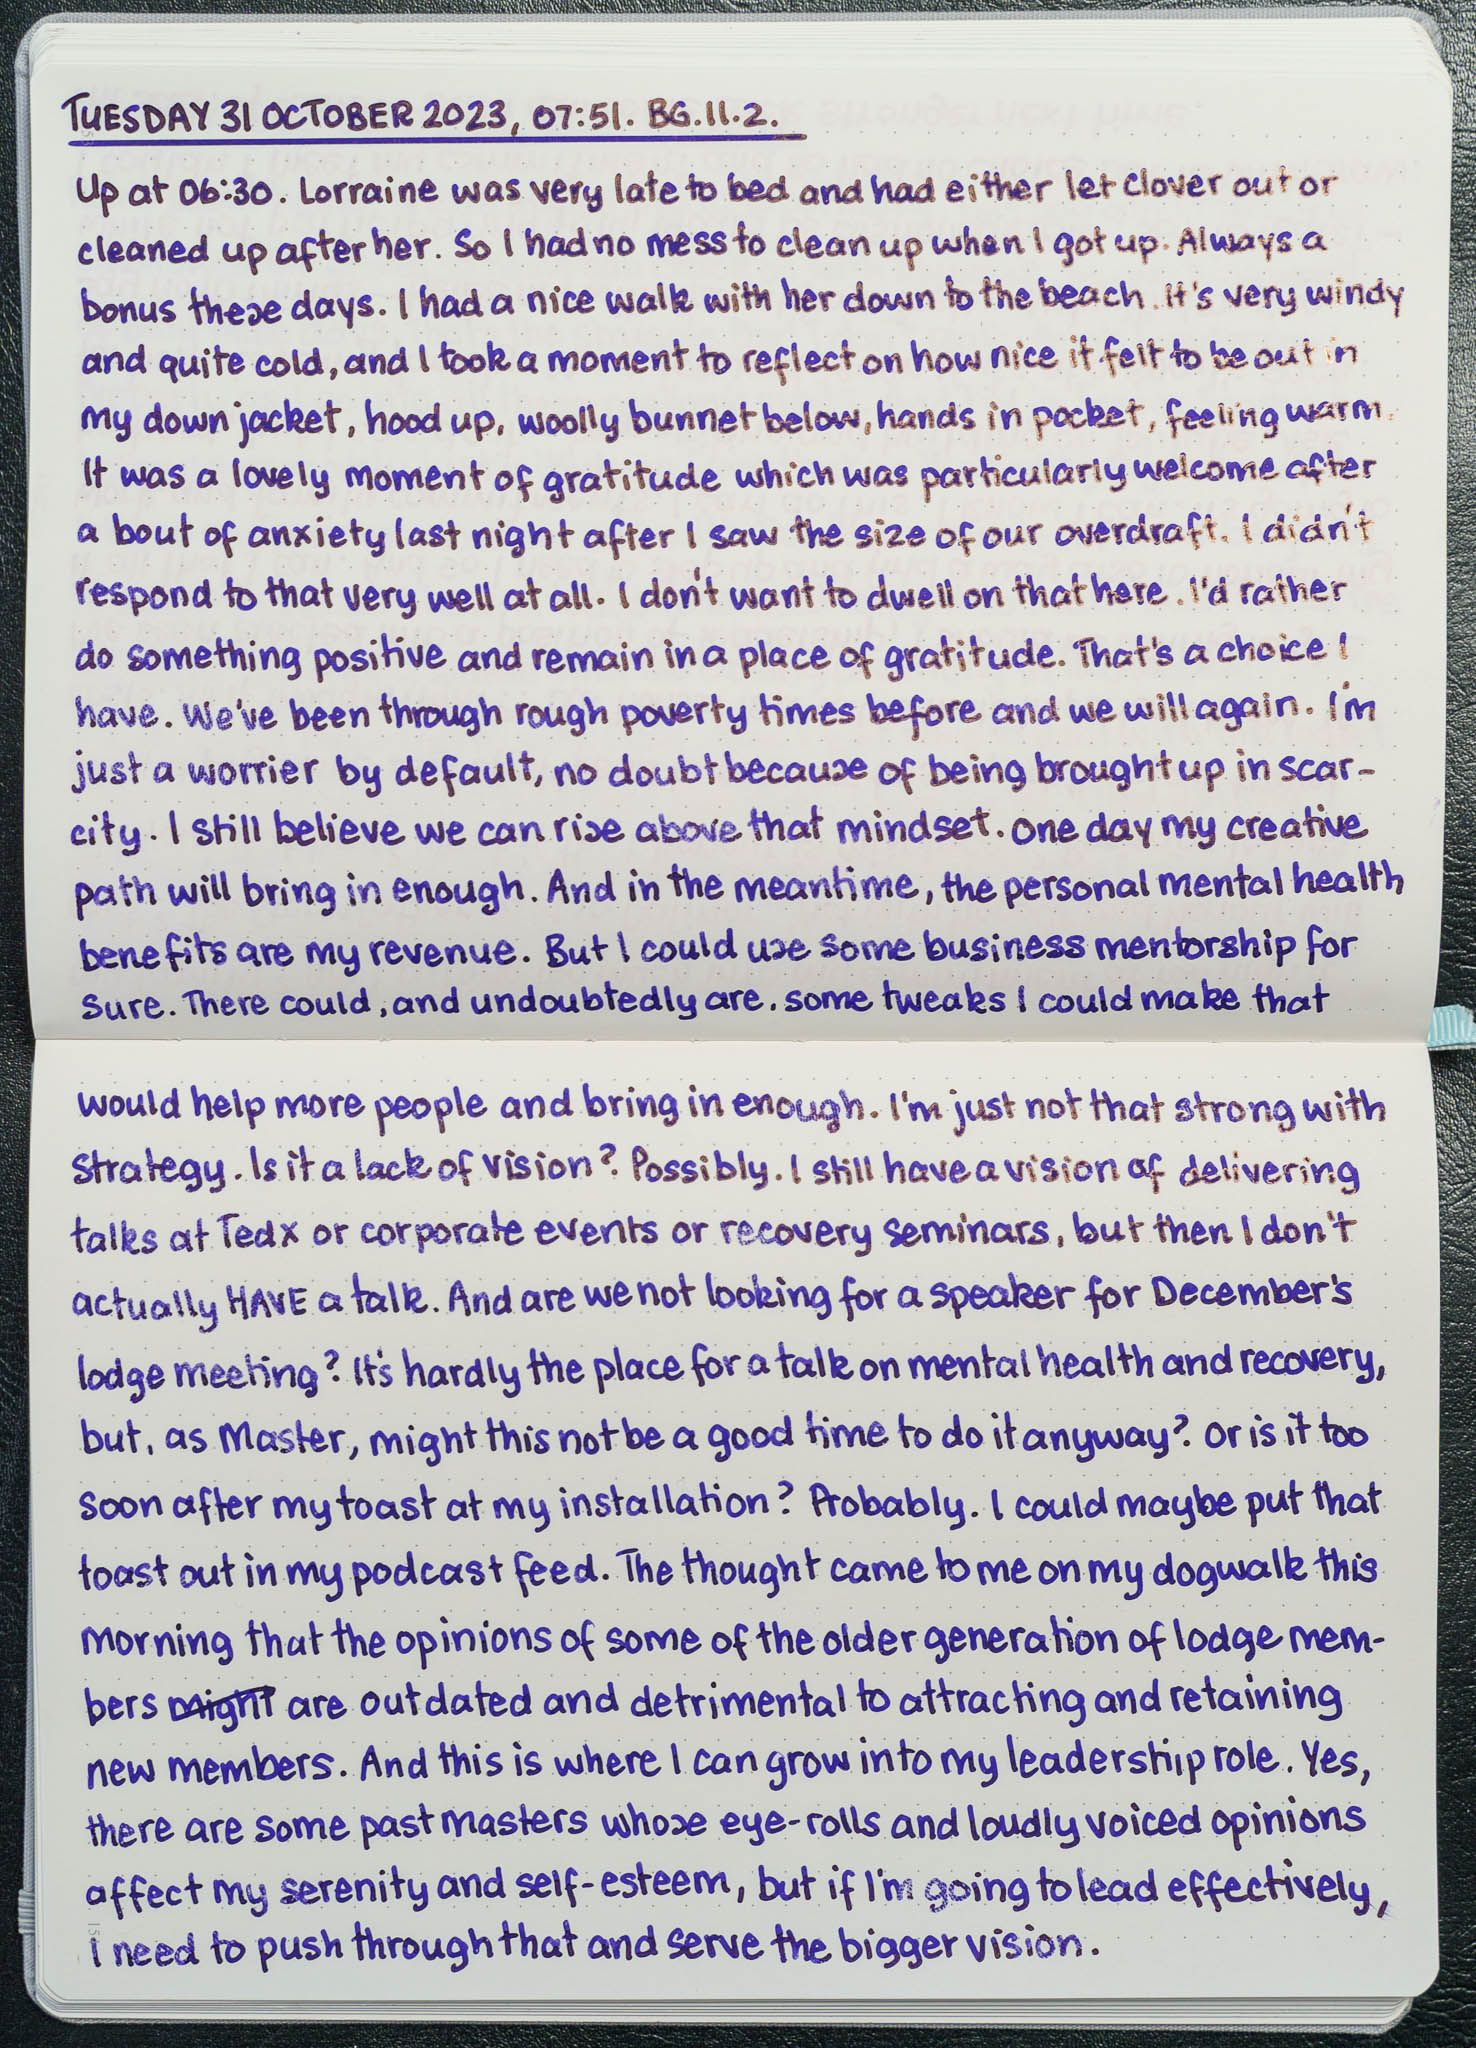 TUESDAY 31 OCTOBER 2023, 07:51. BG.11.2.
Up at 06:30. Lorraine was very late to bed and had either let Clover out or
cleaned up after her. So I had no mess to clean up when I got up. Always a
bonus these days. I had a nice walk with her down to the beach. It's very windy
and quite cold, and I took a moment to reflect on how nice it felt to be out in
my down jacket, hood up, woolly bunnet below, hands in pocket, feeling warm.
It was a lovely moment of gratitude which was particularly welcome after
a bout of anxiety last night after I saw the size of our overdraft. I didn't
respond to that very well at all. I don't want to dwell on that here. I'd rather
do something positive and remain in a place of gratitude. That's a choice I
have. We've been through rough poverty times before and we will again. I'm
just a worrier by default, no doubt because of being brought up in scar-
city. I still believe we can rise above that mindset. One day my creative
path will bring in enough. And in the meantime, the personal mental health
benefits are my revenue. But I could use some business mentorship for
sure. There could, and undoubtedly are, some tweaks I could make that
would help more people and bring in enough. I'm just not that strong with
strategy. Is it a lack of vision? Possibly. I still have a vision of delivering
talks at Tedx or corporate events or recovery seminars, but then I don't
actually HAVE a talk. And are we not looking for a speaker for December's
lodge meeting? It's hardly the place for a talk on mental health and recovery,
but, as Master, might this not be a good time to do it anyway? Or is it too
soon after my toast at my installation? Probably. I could maybe put that
toast out in my podcast feed. The thought came to me on my dogwalk this
morning that the opinions of some of the older generation of lodge mem-
bers might are outdated and detrimental to attracting and retaining
new members. And this is where I can grow into my leadership role. Yes,
there are some past masters whose eye-rolls and loudly voiced opinions
affect my serenity and self-esteem, but if I'm going to lead effectively,
I need to push through that and serve the bigger vision.